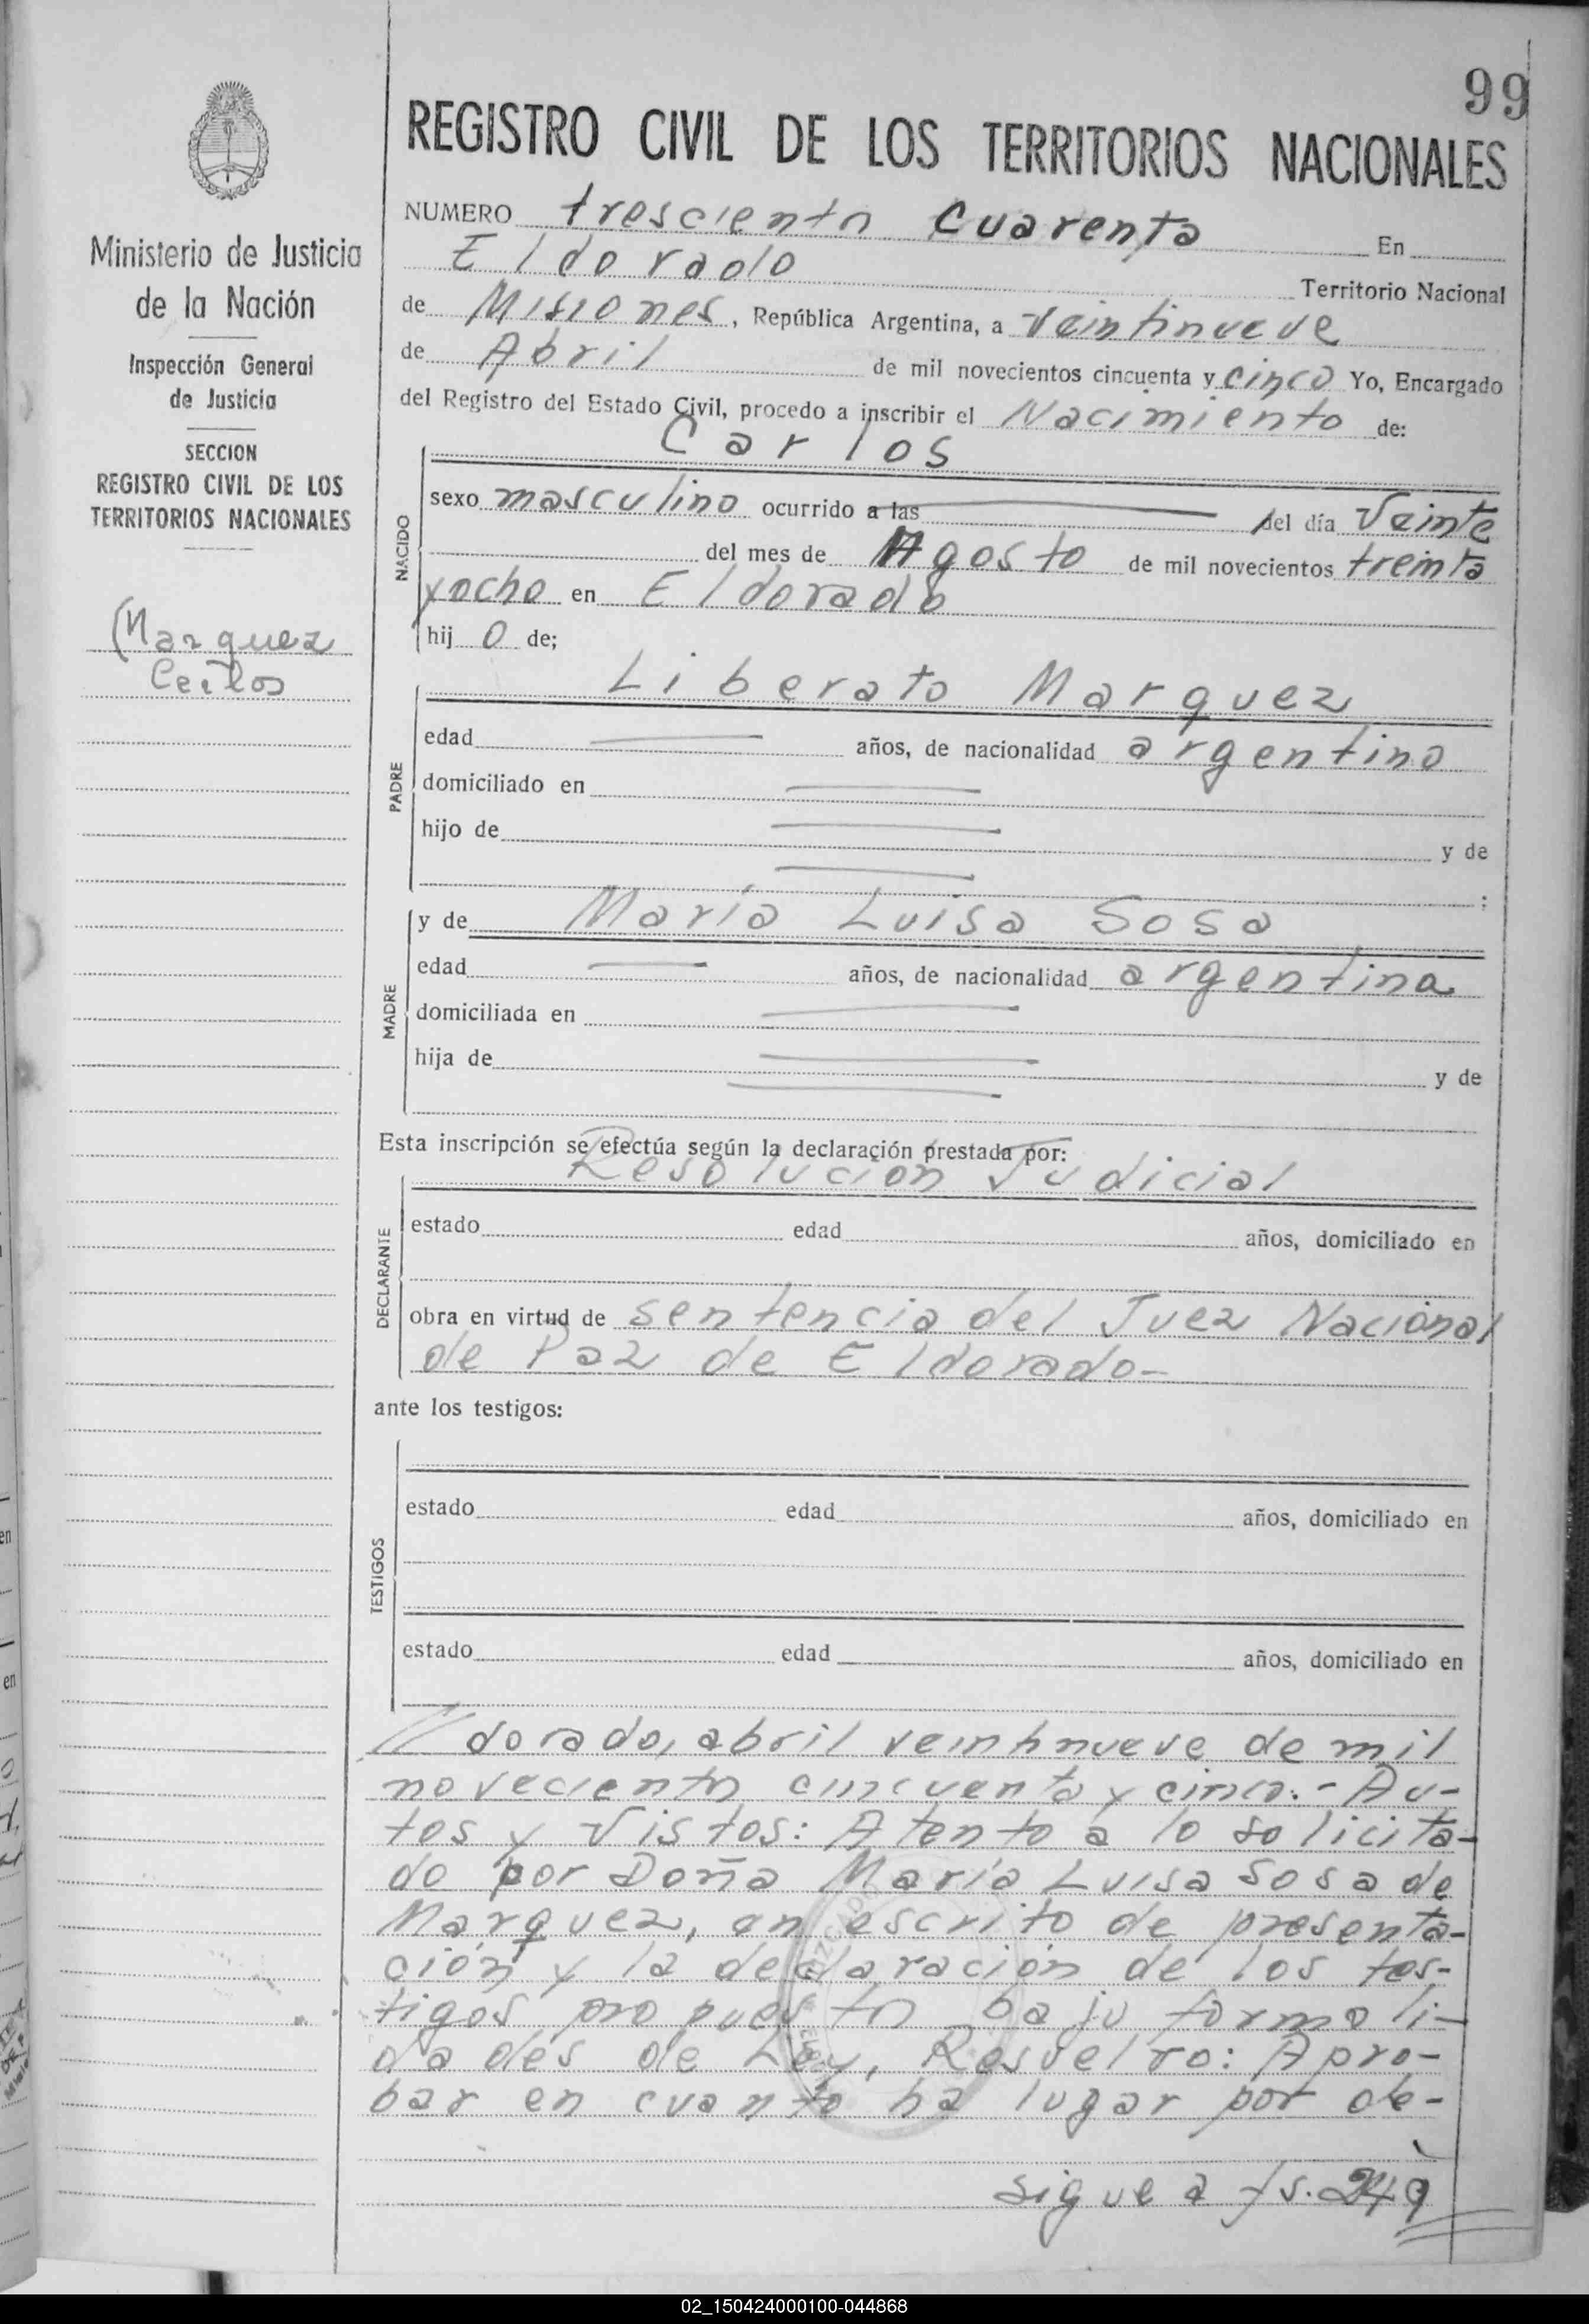 99
REGISTRO CIVIL DE LOS TERRITORIOS NACIONALES
Ministerio de Justicia
de la Nación
Inspección General
de Justicia
SECCION
REGISTRO CIVIL DE LOS
TERRITORIOS NACIONALES
Marquez
Carlos
NUMERO trescientos Cuarenta En
Eldorado Territorio Nacional
de Misiones, República Argentina, a veintinueve
de Abril de mil novecientos cincuenta y cinco Yo, Encargado
del Registro del Estado Civil, procedo a inscribir el Nacimiento de:
Carlos
NACIDO
sexo masculino ocurrido a las del día Veinte
del mes de Agosto de mil novecientos treinta
y ocho en Eldorado
hij o de;
Liberato Marquez
PADRE
edad años, de nacionalidad argentino
domiciliado en
hijo de y de
:
y de María Luisa Sosa
MADRE
edad años, de nacionalidad argentina
domiciliada en
hija de y de
Esta inscripción se efectúa según la declaración prestada por:
Resolución Judicial
DECLARANTE
estado edad años, domiciliado en
obra en virtud de sentencia del Juez Nacional
de Paz de Eldorado-
ante los testigos:
TESTIGOS
estado edad años, domiciliado en
estado edad años, domiciliado en
dorado, abril veintinueve de mil
novecientos cincuenta y cinco.- Au-
tos y Vistos: Atento a lo solicita-
do por Doña María Luisa Sosa de
Marquez, en escrito de presenta-
ción y la declaración de los tes-
tigos propuestos bajo formali-
dades de Ley, Resuelvo: Apro-
bar en cuanto ha lugar por de-
sigue a fs. 249
02_150424000100-044868